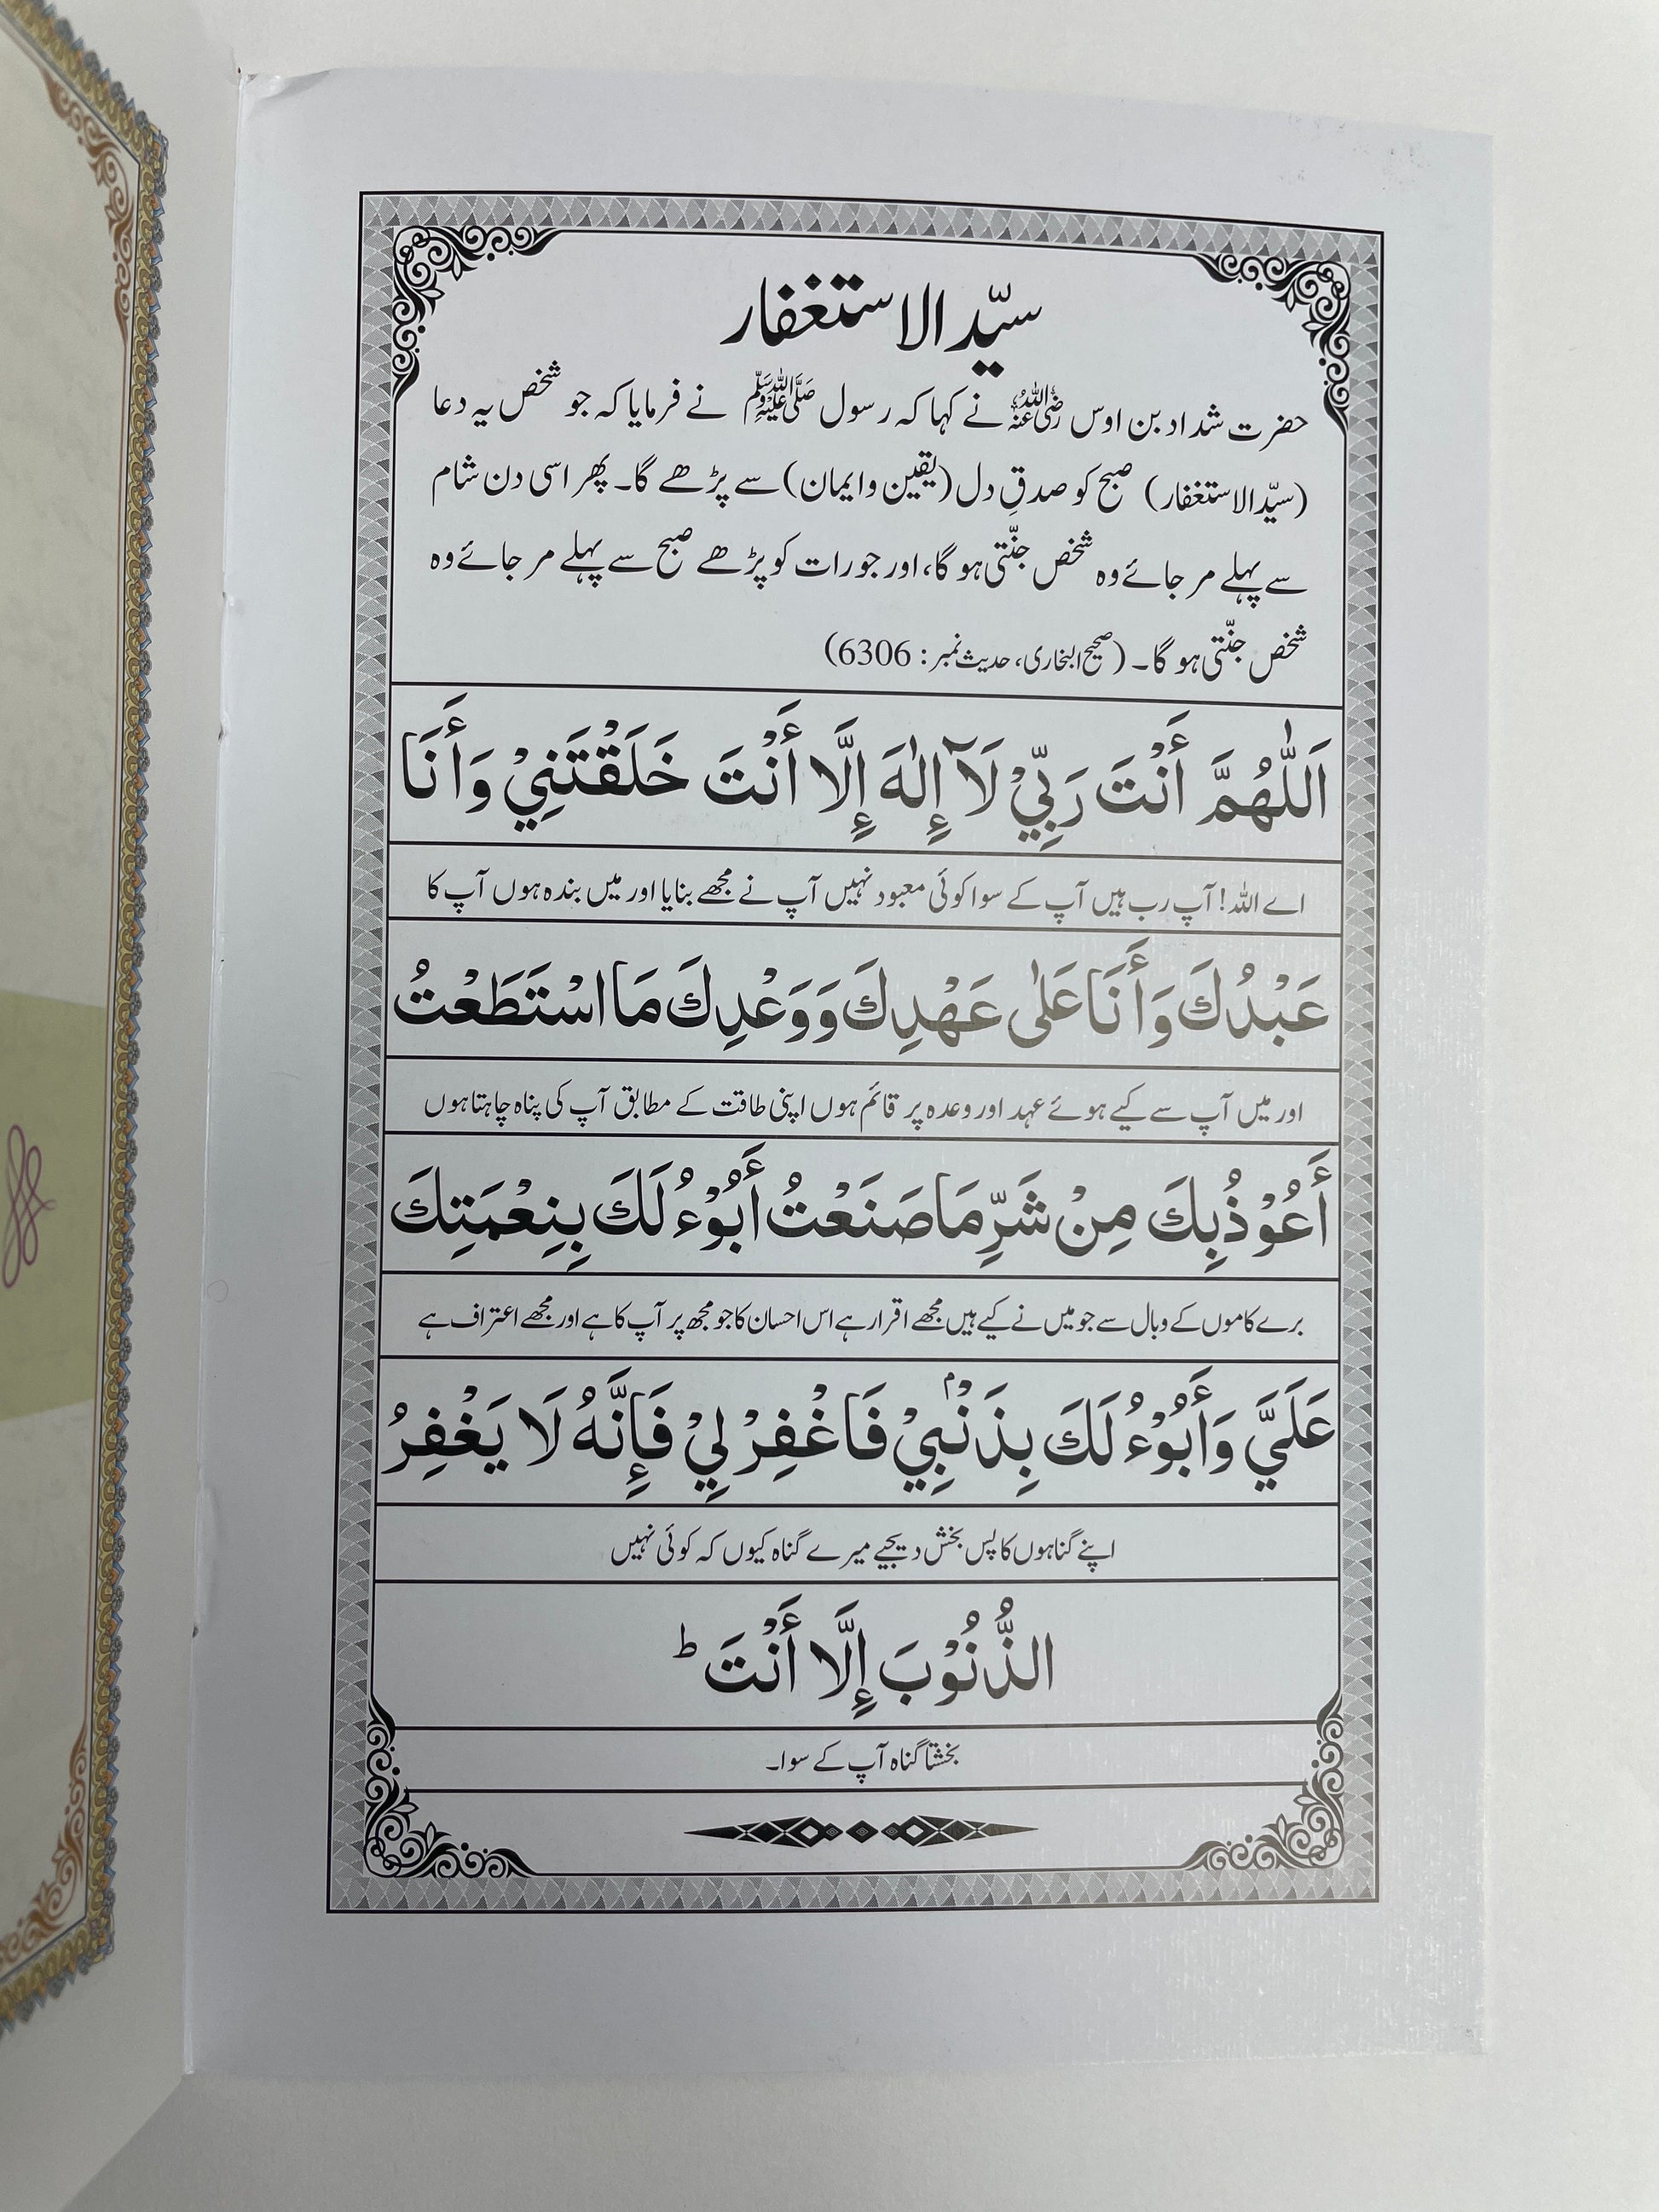 سیّد الاستغفار
حضرت شداد بن اوس رضی اللہ عنہ نے کہا کہ رسول صلی اللہ علیہ وسلم نے فرمایا کہ جو شخص یہ دعا
(سیّد الاستغفار) صبح کو صدقِ دل (یقین و ایمان) سے پڑھے گا۔ پھر اسی دن شام
سے پہلے مر جائے وہ شخص جنّتی ہو گا، اور جو رات کو پڑھے صبح سے پہلے مر جائے وہ
شخص جنّتی ہو گا۔ (صحیح البخاری، حدیث نمبر: 6306)
اَللّٰهُمَّ أَنْتَ رَبِّيْ لَآ إِلٰهَ إِلَّا أَنْتَ خَلَقْتَنِيْ وَأَنَا
اے اللہ! آپ رب ہیں آپ کے سوا کوئی معبود نہیں آپ نے مجھے بنایا اور میں بندہ ہوں آپ کا
عَبْدُكَ وَأَنَا عَلٰى عَهْدِكَ وَوَعْدِكَ مَا اسْتَطَعْتُ
اور میں آپ سے کیے ہوئے عہد اور وعدہ پر قائم ہوں اپنی طاقت کے مطابق آپ کی پناہ چاہتا ہوں
أَعُوْذُ بِكَ مِنْ شَرِّ مَا صَنَعْتُ أَبُوْءُ لَكَ بِنِعْمَتِكَ
برے کاموں کے وبال سے جو میں نے کیے ہیں مجھے اقرار ہے اس احسان کا جو مجھ پر آپ کا ہے اور مجھے اعتراف ہے
عَلَيَّ وَأَبُوْءُ لَكَ بِذَنْۢبِيْ فَاغْفِرْ لِيْ فَإِنَّهُ لَا يَغْفِرُ
اپنے گناہوں کا پس بخش دیجیے میرے گناہ کیوں کہ کوئی نہیں
الذُّنُوْبَ إِلَّا أَنْتَ ؕ
بخشتا گناہ آپ کے سوا۔